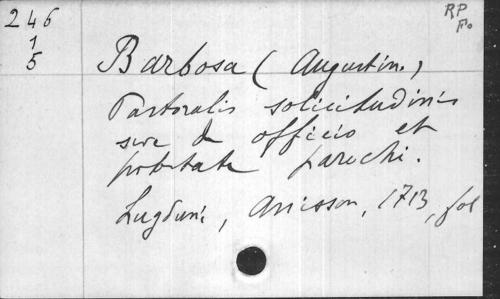 246
1
5
RP
Fo
Barbosa (Augustin.)
Pastoralis solicitudinis
sive de officio et
potestate parochi.
Lugduni, Anisson, 1713, fol